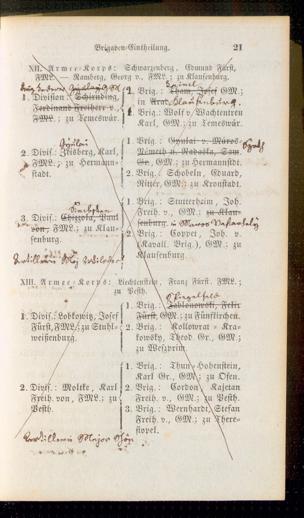 Brigaden-Eintheilung. 21
XII. Armee-Korps: Schwarzenberg, Edmund Fürst,
FML. — Ramberg, Georg v., FML.; zu Klausenburg.
1. Division: Schirnding,
Ferdinand Freiherr v.
FML.; zu Temeswár.
1. Brig.: Jham, Josef GM.;
in Arad. Klausenburg.
2. Brig.: Wolf v. Wachtentreu
Karl, GM.; zu Temeswár.
2. Divis.: Fiedberg, Karl,
FML.; zu Hermann-
stadt.
1. Brig.: Gyulai v. Máros-
Németh u. Nádaska, Sam.
Gr., GM.; zu Hermannstadt.
2. Brig.: Schobeln, Eduard,
Ritter, GM.; zu Kronstadt.
3. Divis.: Chizzola, Paul
von, FML.; zu Klau-
senburg.
1. Brig.: Stutterheim, Joh.
Freih. v., GM.; zu Klau-
senburg.
2. Brig.: Coppet, Joh. v.
(Kavall. Brig.), GM.; zu
Klausenburg.
XIII. Armee-Korps: Liechtenstein, Franz Fürst, FML.;
zu Pesth.
1. Divis.: Lobkowitz, Josef
Fürst, FML.; zu Stuhl-
weißenburg.
1. Brig.: Jablonowski, Felix
Fürst, GM.; zu Fünfkirchen.
2. Brig.: Kollowrat-Kra-
kowsky, Theod. Gr., GM.;
zu Weszprim.
2. Divis.: Moltke, Karl
Freih. von, FML.; zu
Pesth.
1. Brig.: Thun-Hohenstein,
Karl Gr., GM.; zu Ofen.
2. Brig.: Cordon, Kajetan
Freih. v., GM.; zu Pesth.
3. Brig.: Wernhardt, Stefan
Freih. v., GM.; zu There-
siopel.